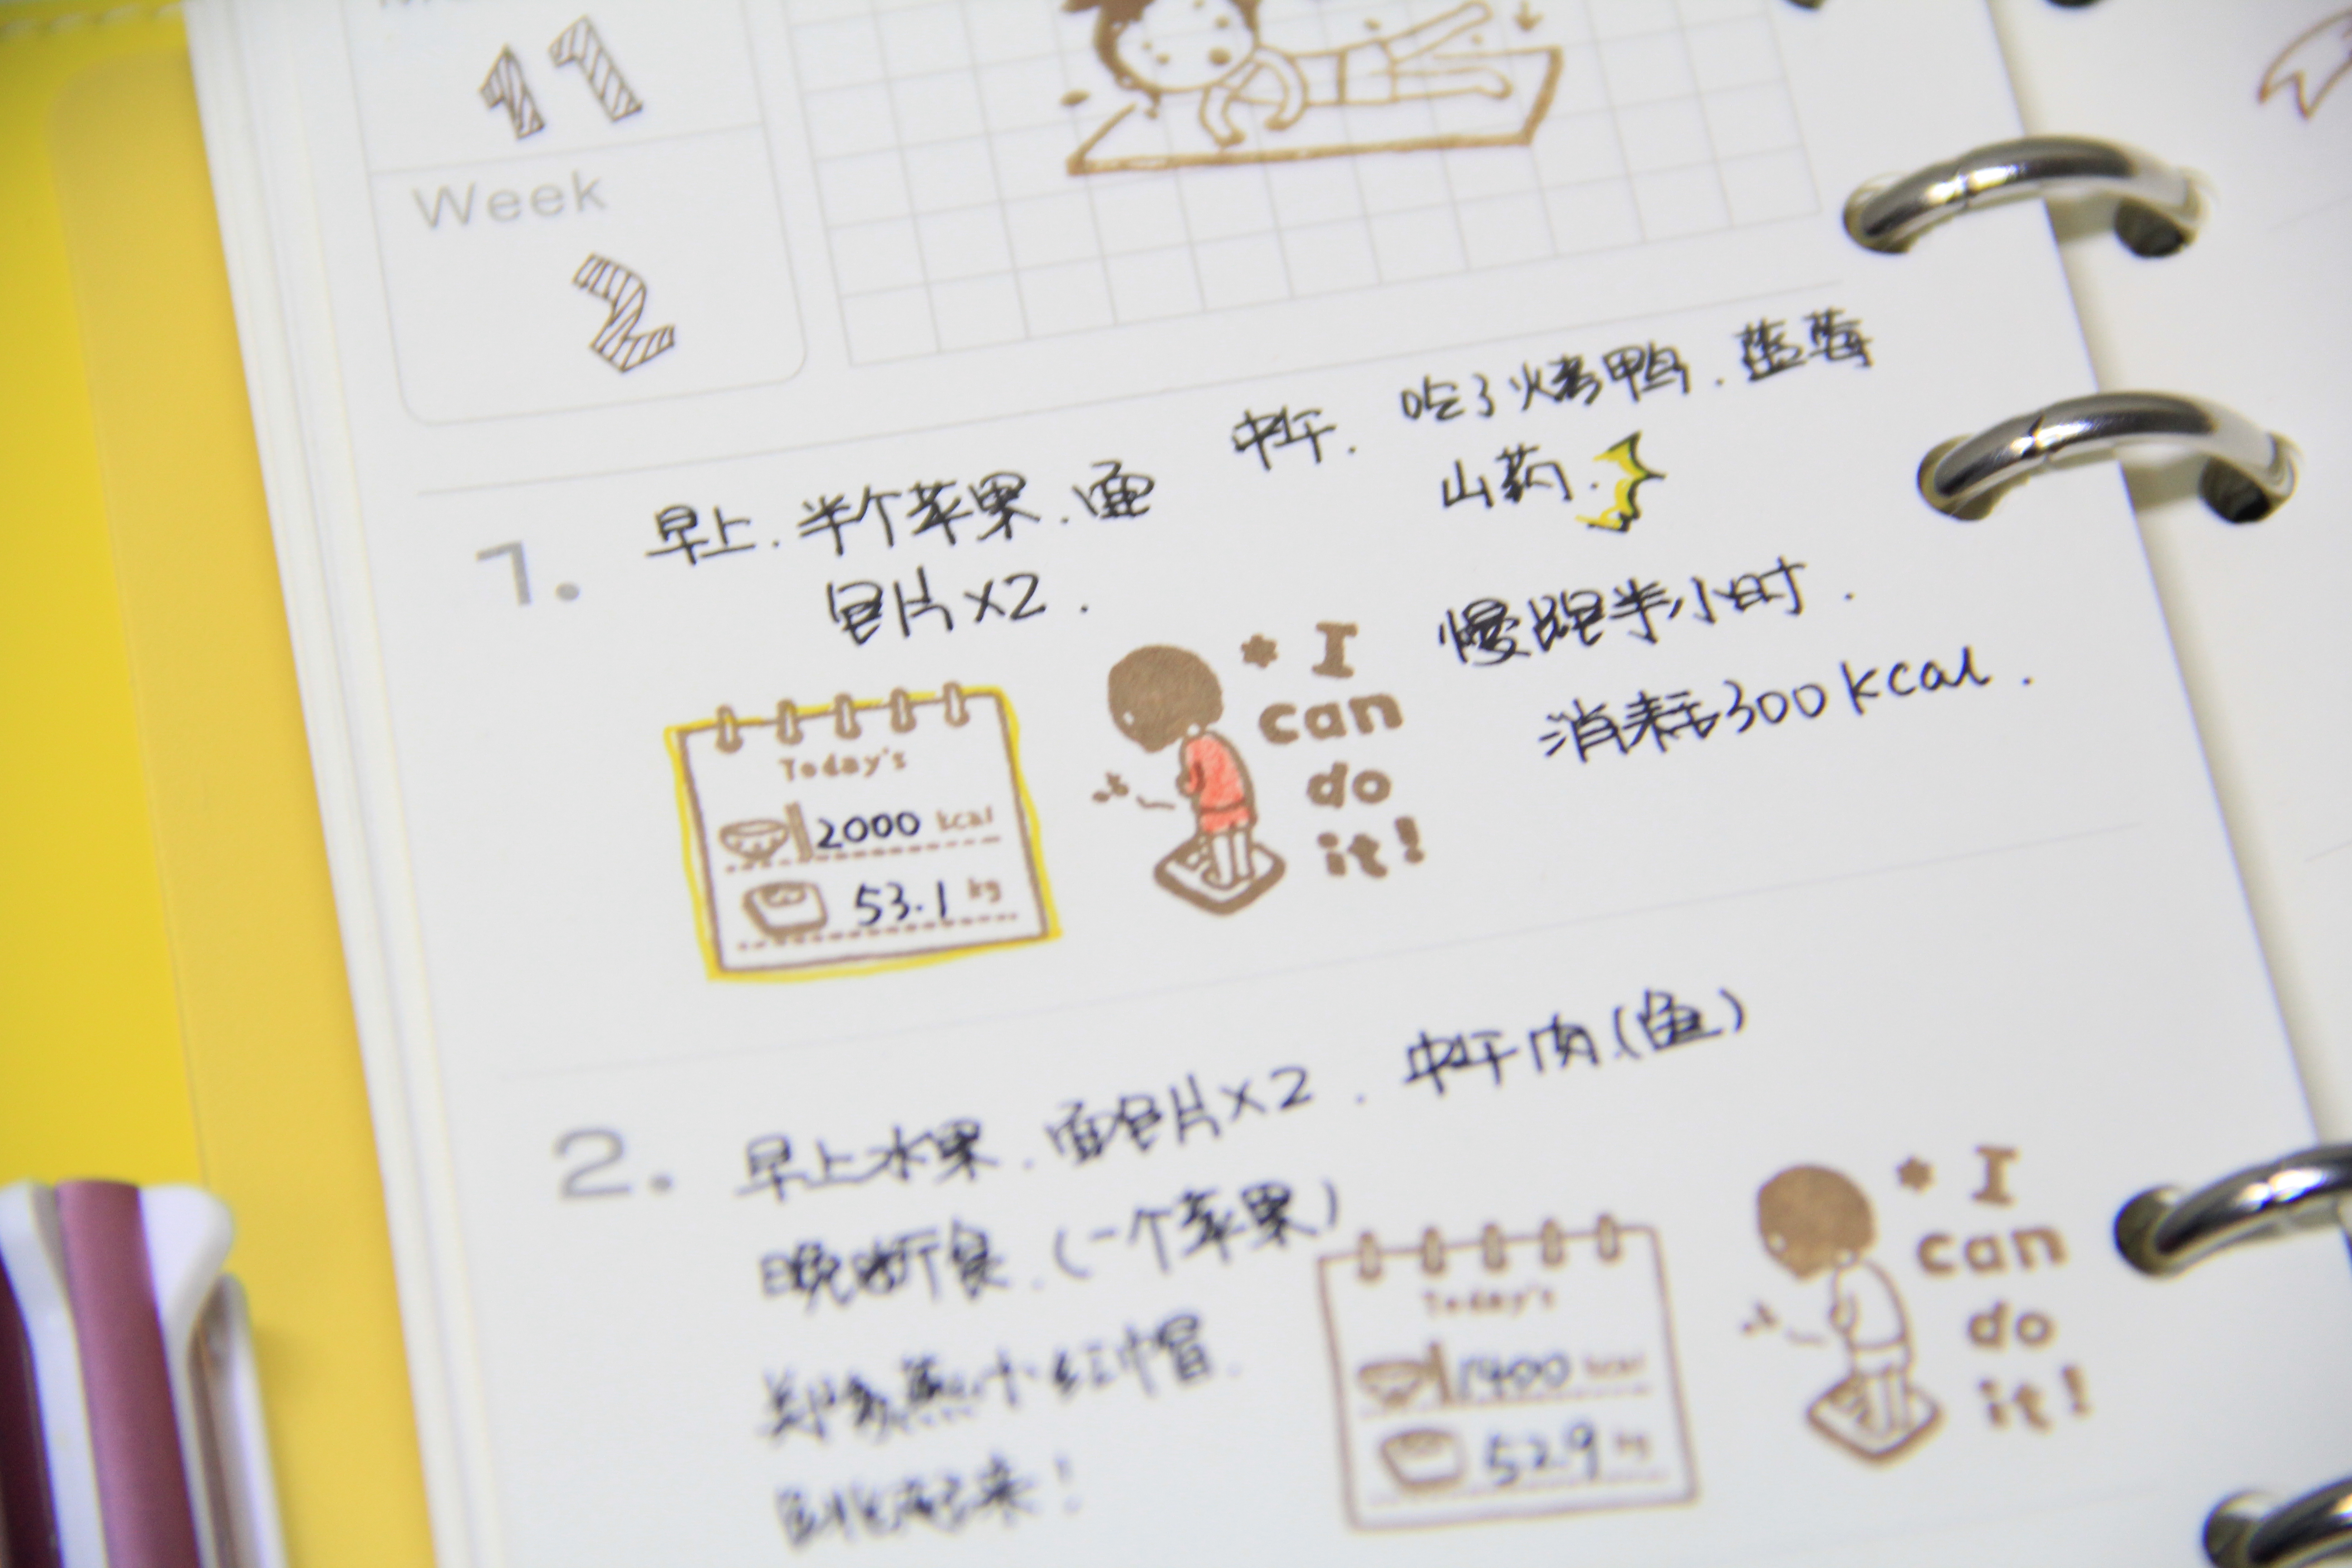 11
Week
2
1.
早上.半个苹果.面
包片x2.
中午.吃了烤鸭.蓝莓
山药.
慢跑半小时.
消耗300kcal.
Today's
2000 kcal
53.1 kg
* I
can
do
it!
2.
早上水果.面包片x2.中午肉(鱼)
晚断食.(一个苹果)
小红帽.
起来!
Today's
1400 kcal
52.9 kg
* I
can
do
it!